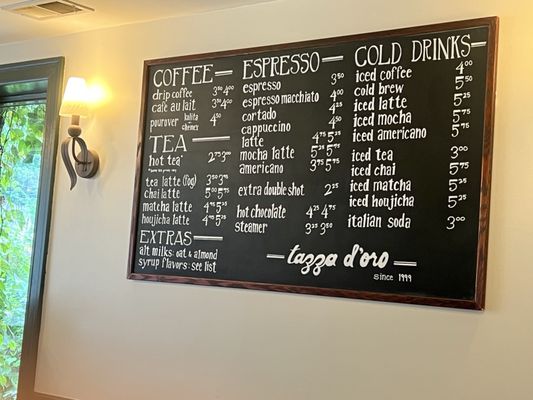 COFFEE
drip coffee 3⁵⁰ 4⁰⁰
cafe au lait 3⁵⁰ 4⁰⁰
pourover kalita or chemex 4⁵⁰
TEA
hot tea* 2⁷⁵ 3⁰⁰
tea latte (fog) 3⁵⁰ 3⁷⁵
chai latte 5⁰⁰ 5⁷⁵
matcha latte 4⁷⁵ 5²⁵
houjicha latte 4⁷⁵ 5²⁵
EXTRAS
alt milks: oat & almond
syrup flavors: see list
ESPRESSO
espresso 3⁵⁰
espresso macchiato 4⁰⁰
cortado 4²⁵
cappuccino 4⁵⁰
latte 4⁷⁵ 5²⁵
mocha latte 5²⁵ 5⁷⁵
americano 3⁵⁰ 3⁷⁵
extra double shot 2²⁵
hot chocolate 4²⁵ 4⁷⁵
steamer 3²⁵ 3⁵⁰
COLD DRINKS
iced coffee 4⁰⁰
cold brew 4⁵⁰
iced latte 5²⁵
iced mocha 5⁷⁵
iced americano 3⁷⁵
iced tea 3⁰⁰
iced chai 5⁷⁵
iced matcha 5²⁵
iced houjicha 5²⁵
italian soda 3⁰⁰
tazza d'oro
since 1999